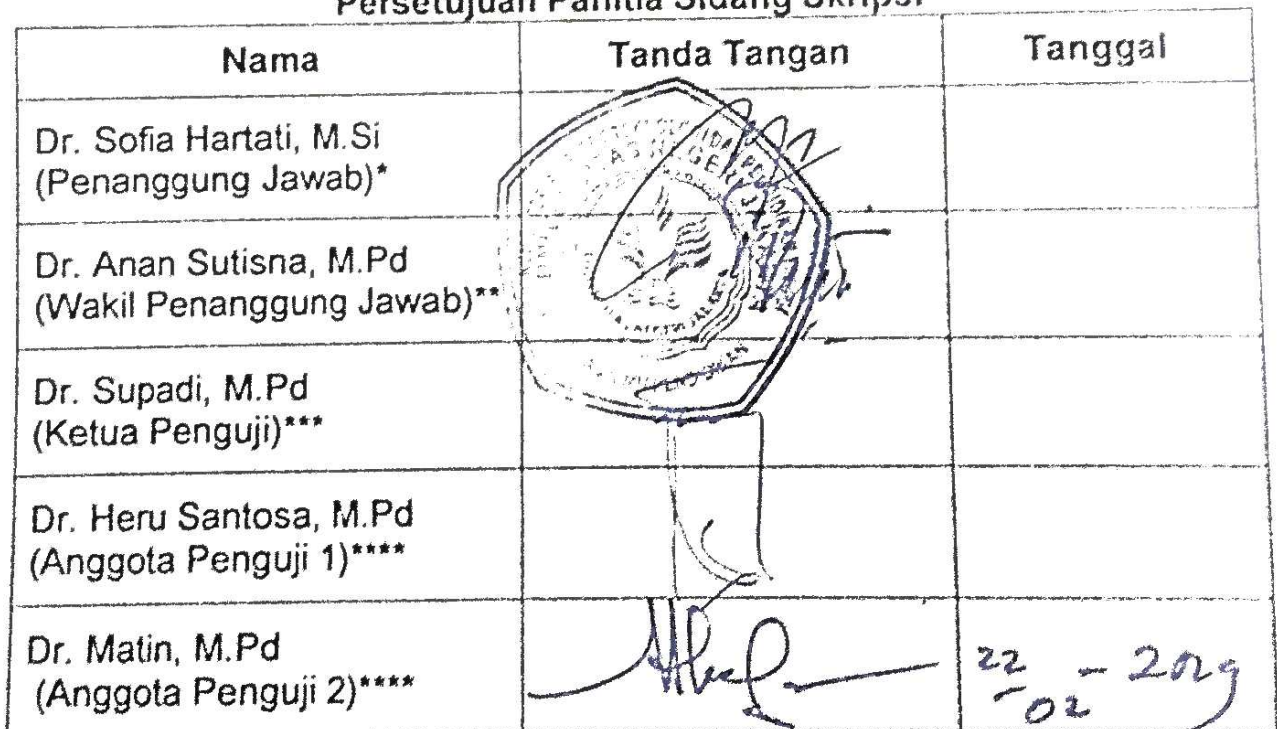 Persetujuan Panitia Sidang Skripsi
Nama
Tanda Tangan
Tanggal
Dr. Sofia Hartati, M.Si
(Penanggung Jawab)*
Dr. Anan Sutisna, M.Pd
(Wakil Penanggung Jawab)**
Dr. Supadi, M.Pd
(Ketua Penguji)***
Dr. Heru Santosa, M.Pd
(Anggota Penguji 1)****
Dr. Matin, M.Pd
(Anggota Penguji 2)****
22
-02